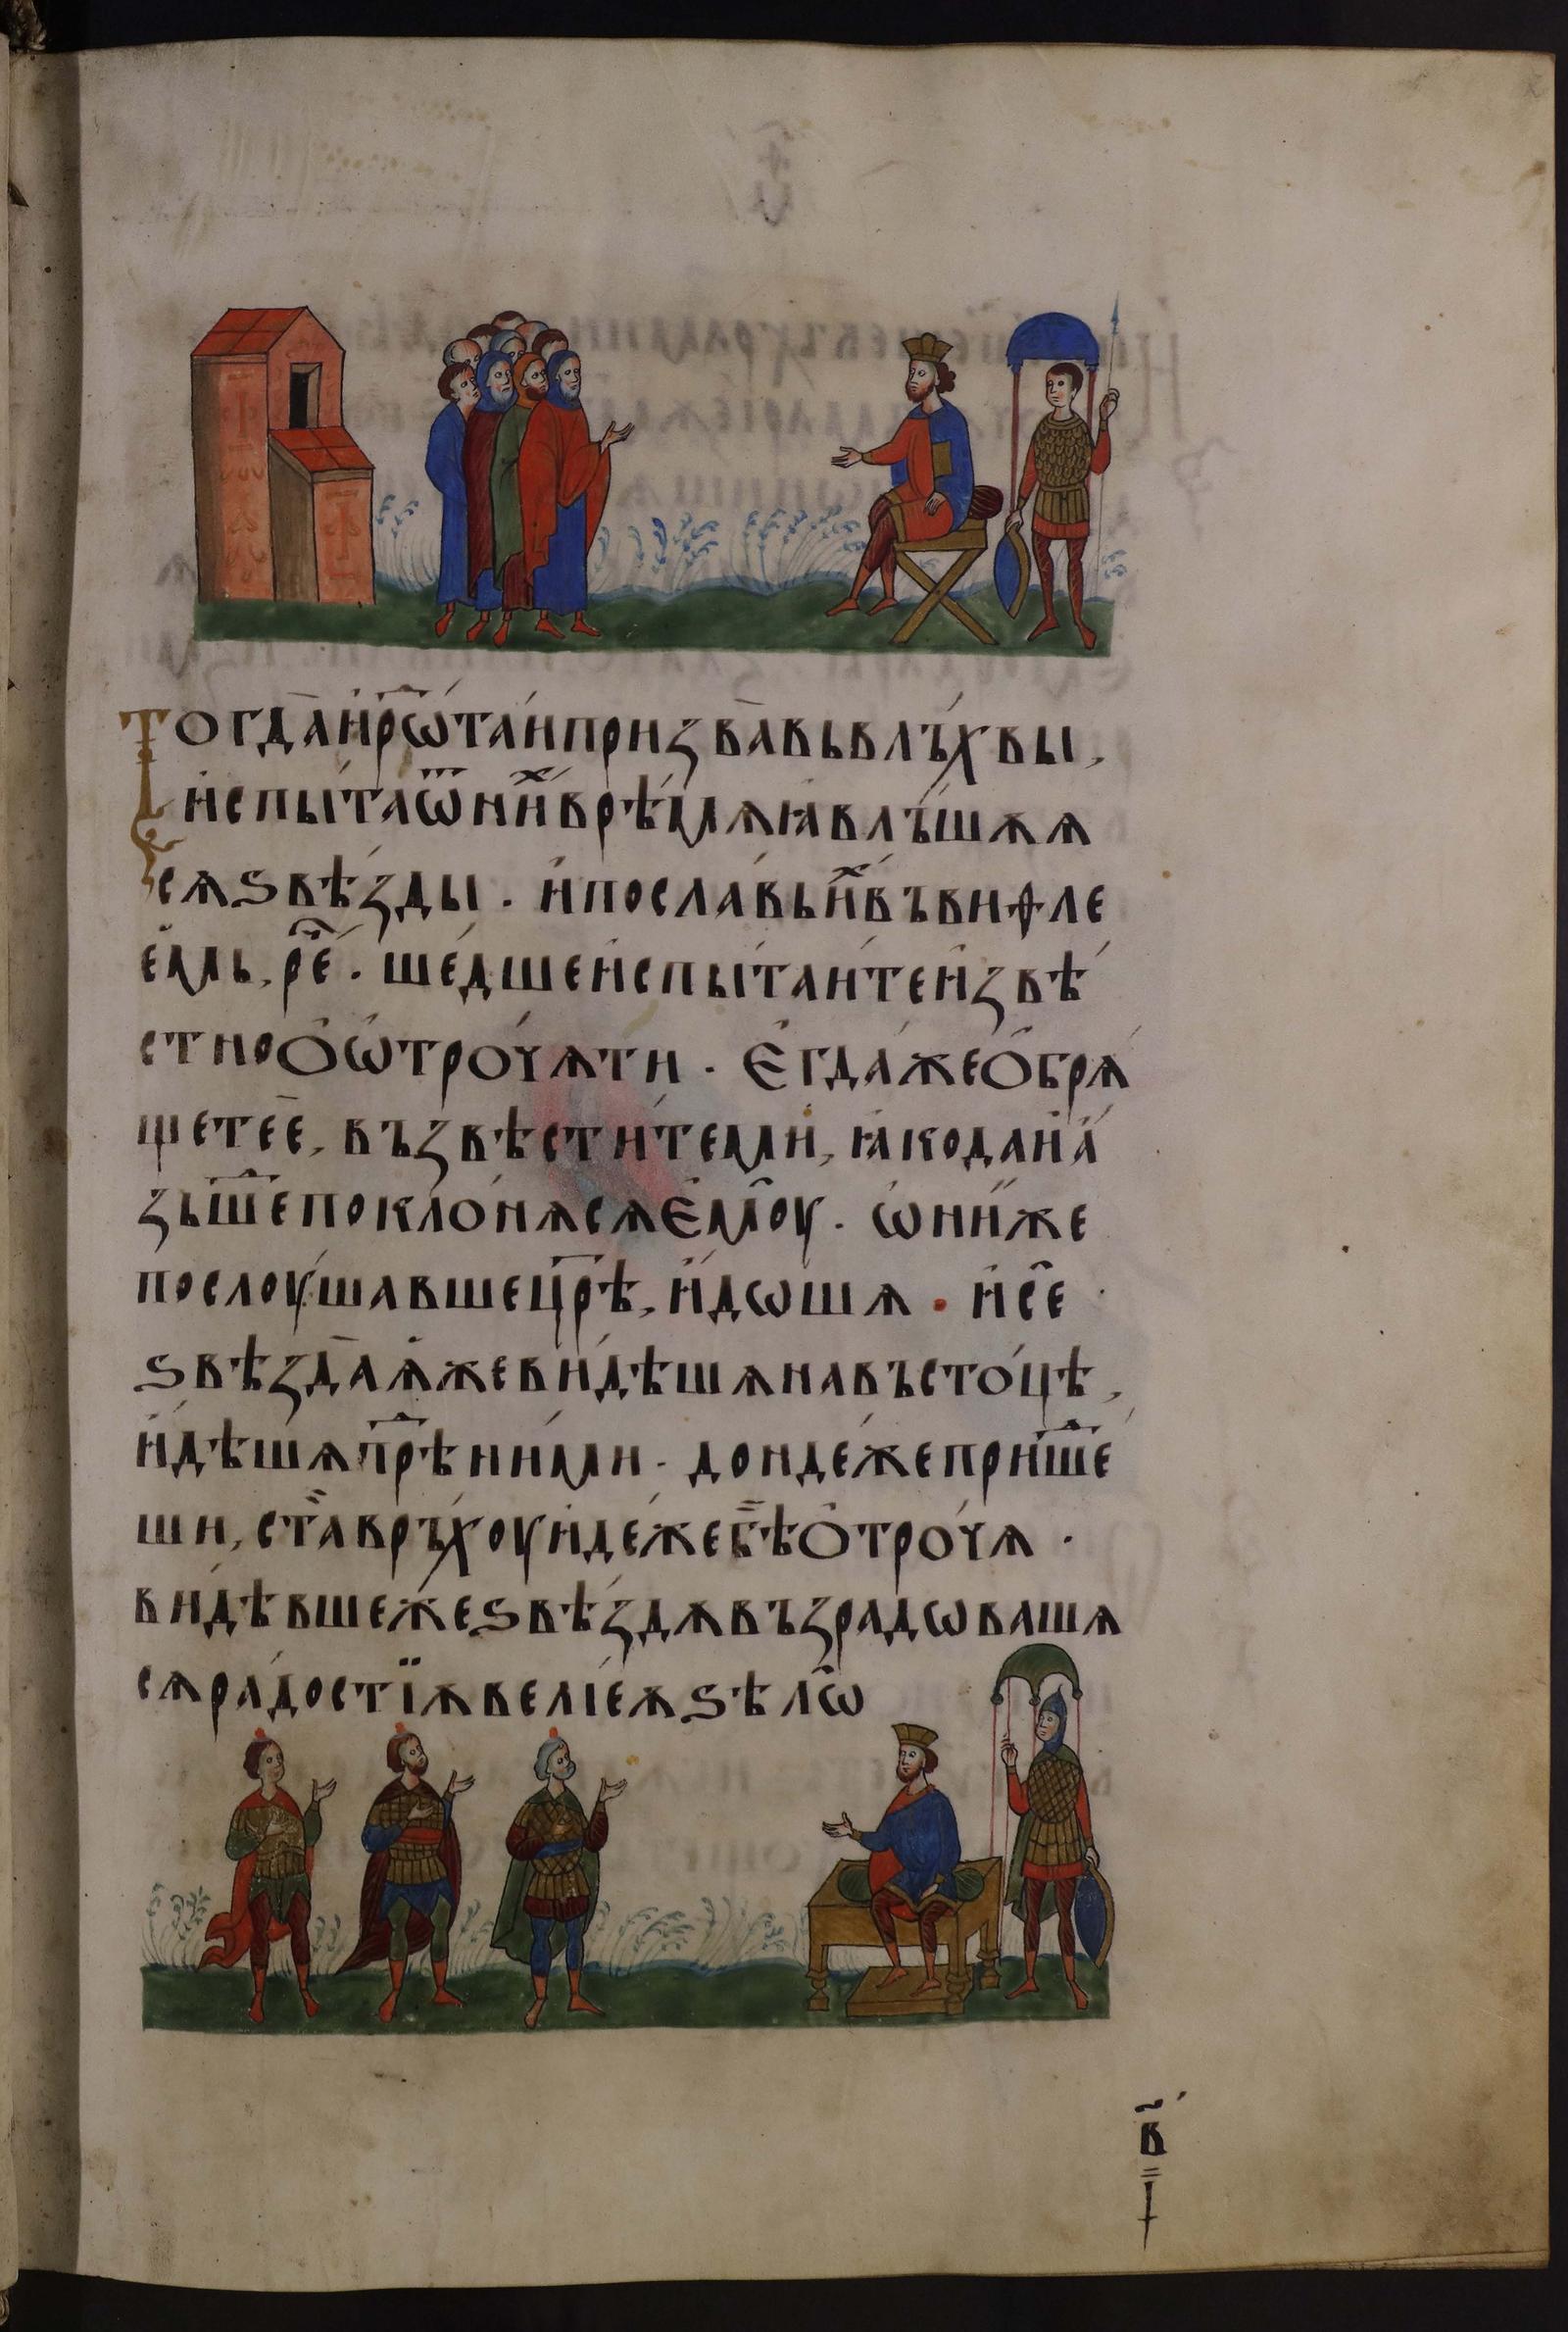 Тогда и҆рѡ҃таи призвавь влъхвы,
и҆спыта ѿ ни́хⷯ врѣмѧ ꙗвлъшѫѧ
сѧ ѕвѣзды · и҆ пославь и҆хⷯ въ виѳле
е҆мь, рече · шедше и҆спытаите и҆звѣ
стно о҆ ѡ҆трочѧти · Егда же о҆брѧ
щете е, възвѣстите ми, ꙗко да и а
зь ше поклонѫ сѧ емоу · ѡ҆ни же
послоушавше ц҃рѣ, и҆дѡшѧ · и҆ се
ѕвѣзда ѫ҆же видѣшѧ на въстоцѣ,
и҆дѣшѧ прⷣѣ ними · дондеже пришеⷣ
ши, ста връхоу идеже бѣ о҆трочѧ ·
видѣвше же ѕвѣздѫ възрадѡвашѧ
сѧ радостїѫ веліеѫ ѕѣлѡ
в҃